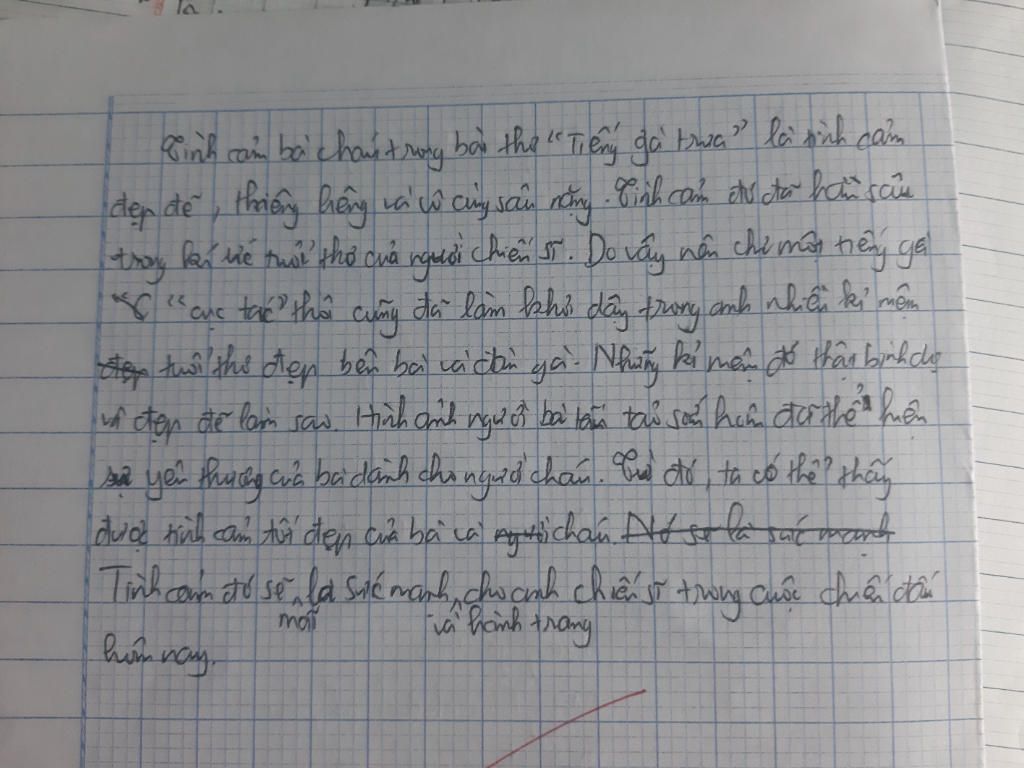 Tình cảm bà cháu trong bài thơ "Tiếng gà trưa" là tình cảm
đẹp đẽ, thiêng liêng và vô cùng sâu nặng. Tình cảm đó đã hằn sâu
trong kí ức tuổi thơ của người chiến sĩ. Do vậy nên chỉ một tiếng gà
"cục tác" thôi cũng đã làm khơi dậy trong anh nhiều kỉ niệm
tuổi thơ đẹp bên bà và đàn gà. Những kỉ niệm đó thật bình dị
và đẹp đẽ làm sao. Hình ảnh người bà tần tảo sớm hôm đã thể hiện
sự yêu thương của bà dành cho người cháu. Từ đó, ta có thể thấy
được tình cảm tốt đẹp của bà và cháu. Nó sẽ là sức mạnh
Tình cảm đó sẽ mãi là sức mạnh và hành trang cho anh chiến sĩ trong cuộc chiến đấu
hôm nay.